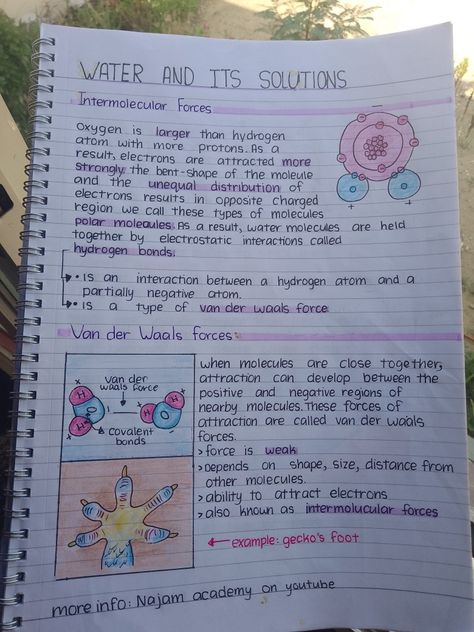 WATER AND ITS SOLUTIONS
Intermolecular Forces
Oxygen is larger than hydrogen
atom with more protons. As a
result, electrons are attracted more
strongly. the bent-shape of the moleule
and the unequal distribution of
electrons results in opposite charged
region we call these types of molecules
polar moleaules. As a result, water molecules are held
together by electrostatic interactions called
hydrogen bonds.
• is an interaction between a hydrogen atom and a
partially negative atom.
• is a type of van der waals force
Van der Waals forces:
van der
waals force
H
H
O
H
covalent
bonds
when molecules are close together,
attraction can develop between the
positive and negative regions of
nearby molecules. These forces of
attraction are called van der waals
forces.
> force is weak
> depends on shape, size, distance from
other molecules.
> ability to attract electrons
> also known as intermolucular forces
← example: gecko's foot
more info: Najam academy on youtube